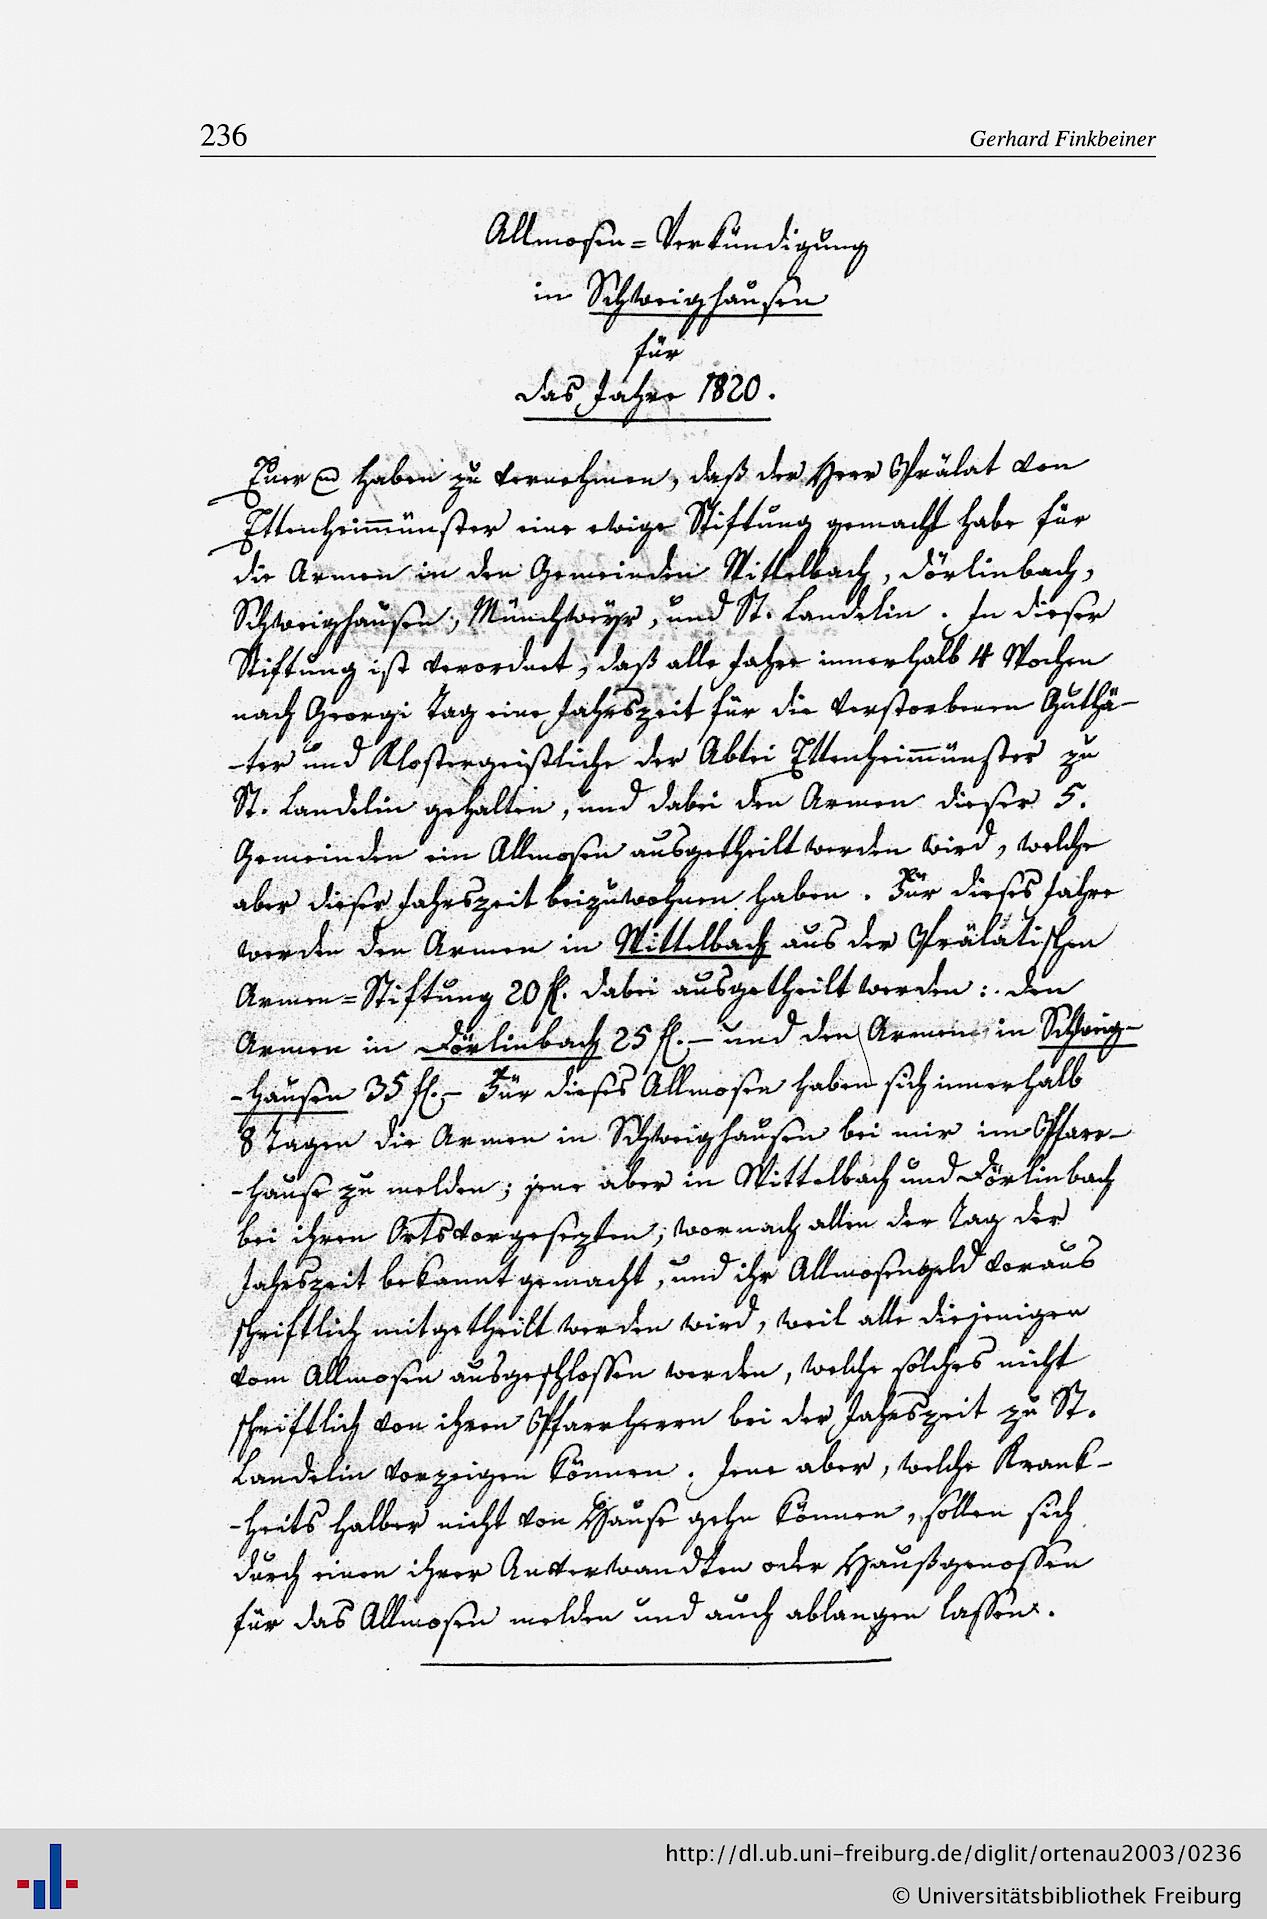 236
Gerhard Finkbeiner
Allmosen=Verkündigung
in Schweighausen
für
das Jahre 1820.
Euer haben zu vernehmen, daß der Herr Prälat von
Ettenheimmünster eine ewige Stiftung gemacht habe für
die Armen in den Gemeinden Wittelbach, Dörlinbach,
Schweighausen, Münchweyr, und St. Landelin. In dieser
Stiftung ist verordnet, daß alle Jahre innerhalb 4 Wochen
nach Georgi Tag eine Jahrszeit für die verstorbenen Guthä-
-ter und Klostergeistliche der Abtei Ettenheimmünster zu
St. Landelin gehalten, und dabei den Armen dieser 5.
Gemeinden ein Allmosen ausgetheilt werden wird, welche
aber dieser Jahrszeit beizuwohnen haben. Für dieses Jahre
werden den Armen in Wittelbach aus der Prälatischen
Armen=Stiftung 20 fl. dabei ausgetheilt werden: den
Armen in Dörlinbach 25 fl. – und den Armen in Schweig-
-hausen 35 fl. – Für dieses Allmosen haben sich innerhalb
8 Tagen die Armen in Schweighausen bei mir im Pfarr-
-hause zu melden; jene aber in Wittelbach und Dörlinbach
bei ihren Ortsvorgesezten, wornach allen der Tag der
Jahrszeit bekannt gemacht, und ihr Allmosengeld voraus
schriftlich mitgetheilt werden wird, weil alle diejenigen
vom Allmosen ausgeschlossen werden, welche solches nicht
schriftlich von ihren Pfarrherrn bei der Jahrszeit zu St.
Landelin vorzeigen können. Jene aber, welche Krank-
-heits halber nicht von Hause gehn können, sollen sich
durch einen ihrer Anverwandten oder Haußgenossen
für das Allmosen melden und auch ablangen lassen.
http://dl.ub.uni-freiburg.de/diglit/ortenau2003/0236
© Universitätsbibliothek Freiburg